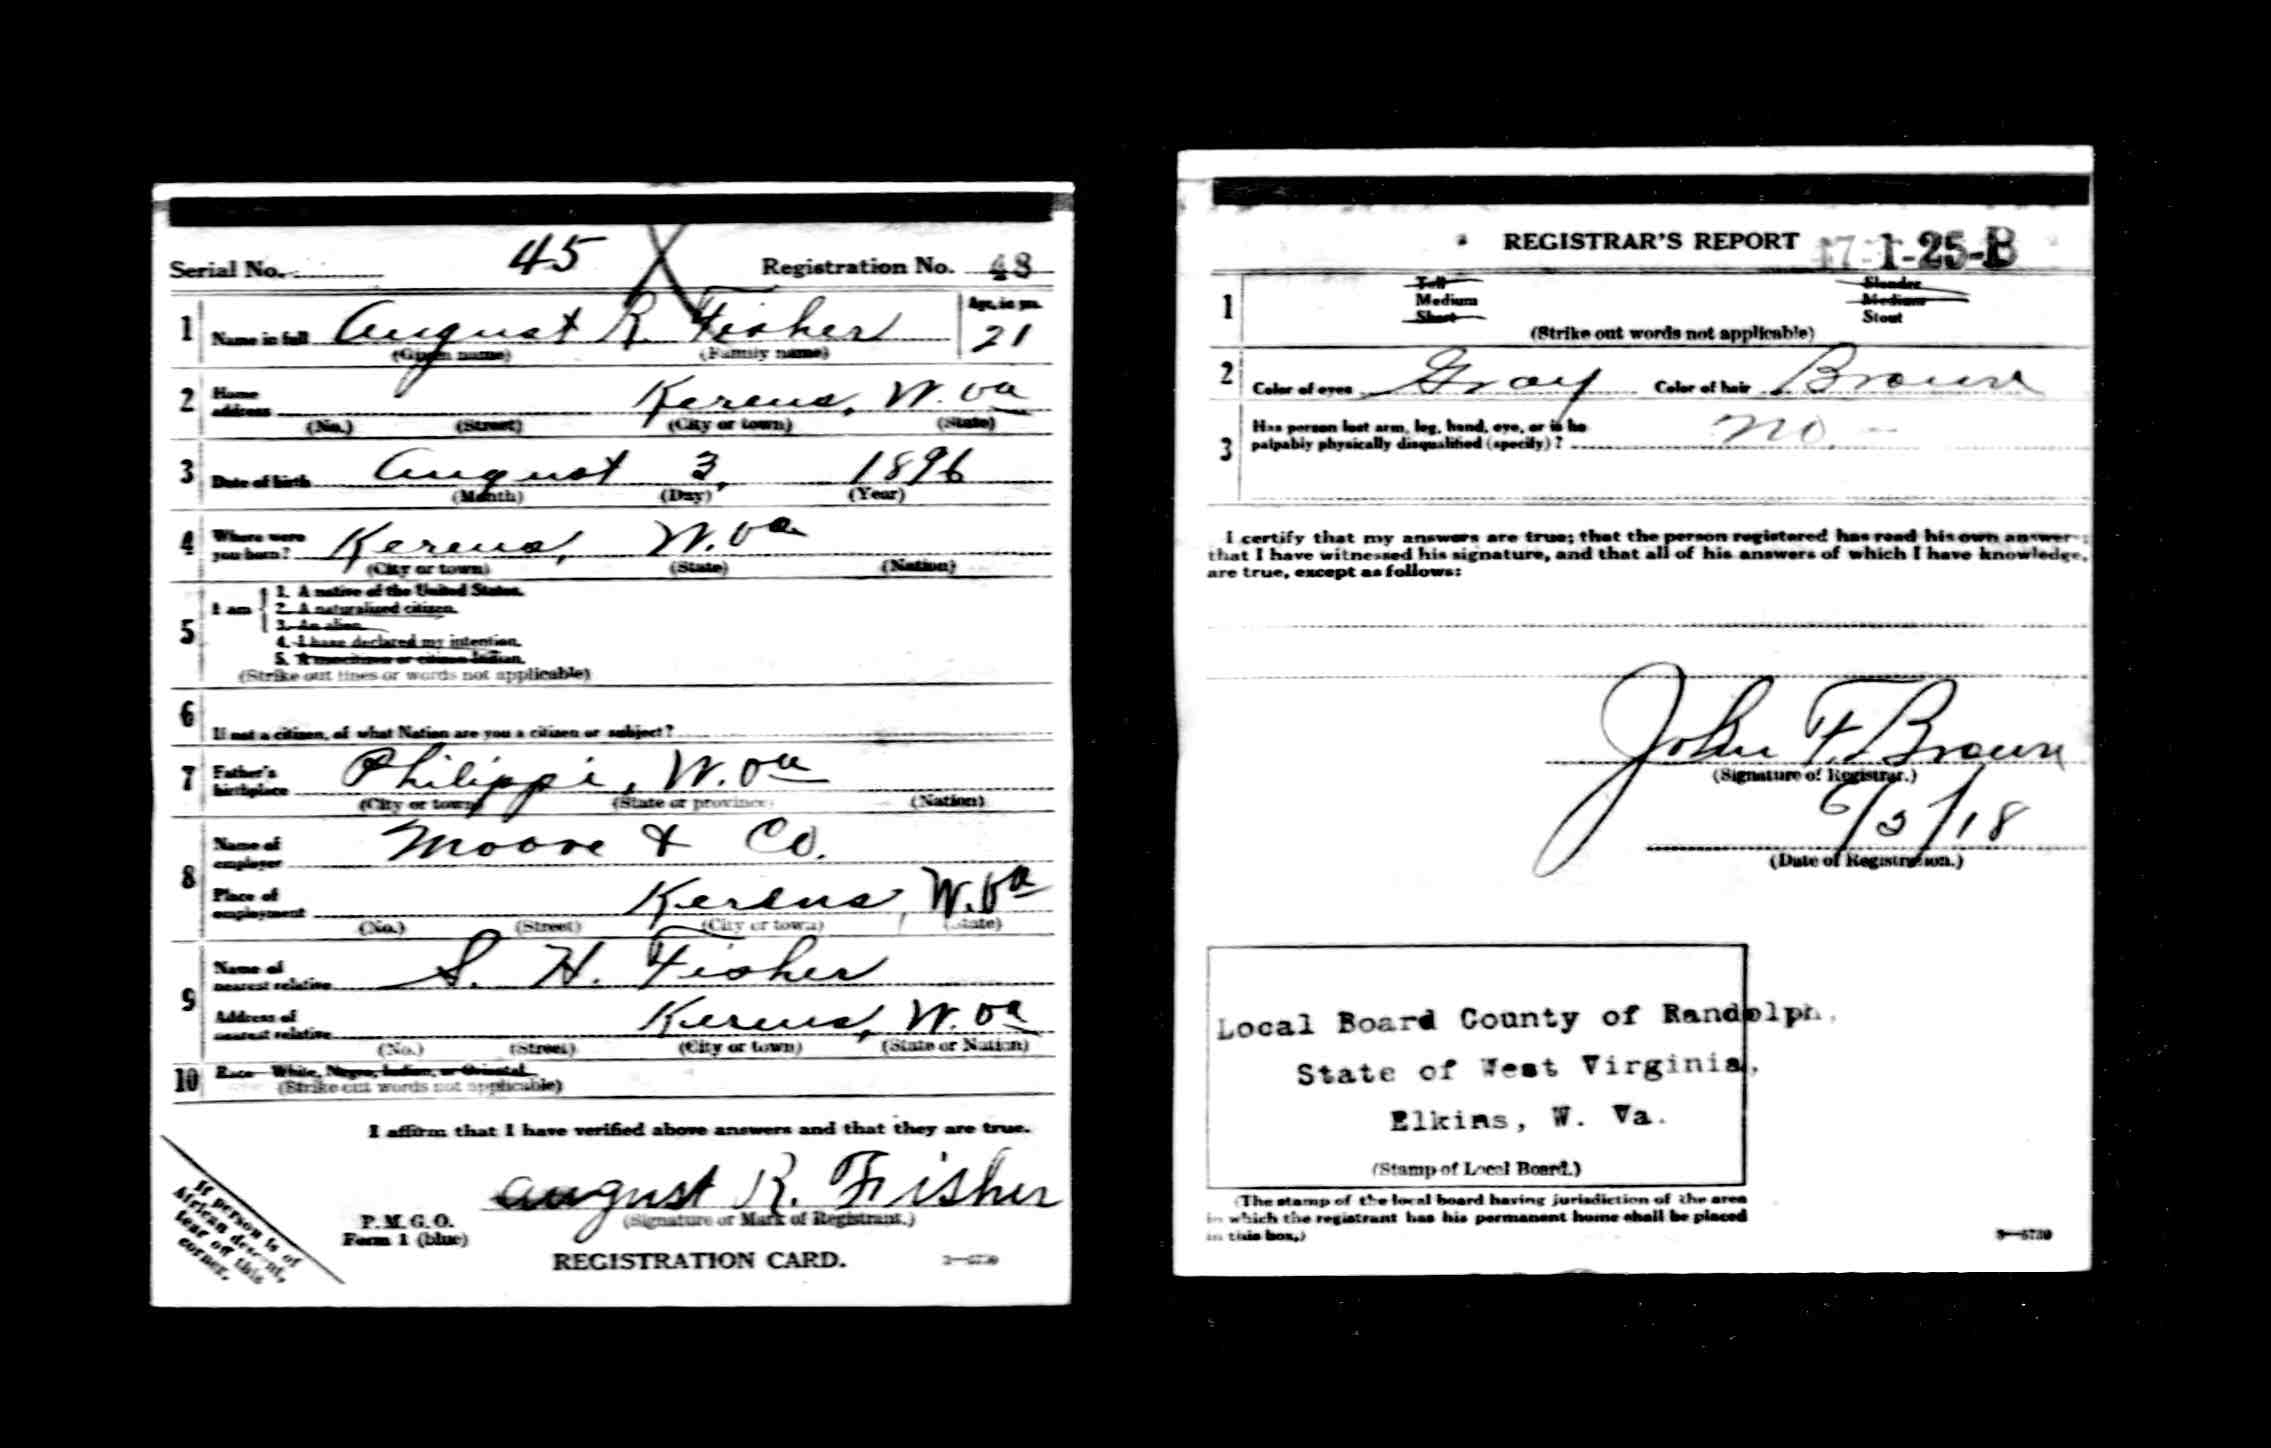 Serial No. 45 Registration No. 48
1 Name in full August R. Fisher Age, in yrs. 21
(Given name) (Family name)
2 Home address Kerens, W. Va
(No.) (Street) (City or town) (State)
3 Date of birth August 3, 1896
(Month) (Day) (Year)
4 Where were you born? Kerens, W. Va
(City or town) (State) (Nation)
5 I am
1. A native of the United States.
2. A naturalized citizen.
3. An alien.
4. I have declared my intention.
5. A noncitizen or citizen Indian.
(Strike out lines or words not applicable)
6 If not a citizen, of what Nation are you a citizen or subject?
7 Father's birthplace Philippi, W. Va
(City or town) (State or province) (Nation)
8 Name of employer Moore & Co.
Place of employment Kerens, W. Va
(No.) (Street) (City or town) (State)
9 Name of nearest relative S. H. Fisher
Address of nearest relative Kerens, W. Va
(No.) (Street) (City or town) (State or Nation)
10 Race—White, Negro, Indian, or Oriental.
(Strike out words not applicable)
I affirm that I have verified above answers and that they are true.
August R. Fisher
(Signature or Mark of Registrant.)
P. M. G. O.
Form 1 (blue)
REGISTRATION CARD.
3—6739
If person is of
African descent,
tear off this
corner.
REGISTRAR'S REPORT 47-1-25-B
1 Tall Slender
Medium Medium
Short Stout
(Strike out words not applicable)
2 Color of eyes Gray Color of hair Brown
3 Has person lost arm, leg, hand, eye, or is he
palpably physically disqualified (specify)? No.
I certify that my answers are true; that the person registered has read his own answers;
that I have witnessed his signature, and that all of his answers of which I have knowledge,
are true, except as follows:
John F. Brown
(Signature of Registrar.)
6/5/18
(Date of Registration.)
Local Board County of Randolph,
State of West Virginia,
Elkins, W. Va.
(Stamp of Local Board.)
(The stamp of the local board having jurisdiction of the area
in which the registrant has his permanent home shall be placed
in this box.)
3—6739